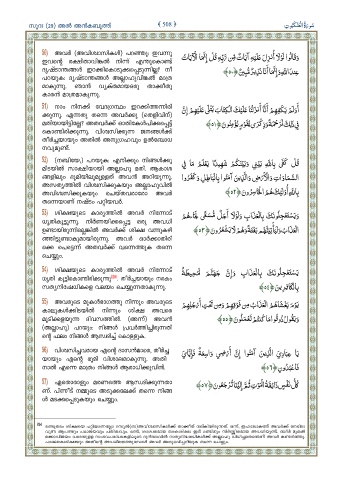 സൂറ: (29) അൽ അൻകബൂത്ത് ( 508 ) سُورَةُ الْعَنْكَبُوتِ
50) അവർ (അവിശ്വാസികൾ) പറഞ്ഞു: ഇവന്നു
ഇവന്റെ രക്ഷിതാവിങ്കൽ നിന്ന് എന്തുകൊണ്ട്
ദൃഷ്ടാന്തങ്ങൾ ഇറക്കികൊടുക്കപ്പെടുന്നില്ല? നീ
പറയുക: ദൃഷ്ടാന്തങ്ങൾ അല്ലാഹുവിങ്കൽ മാത്ര
മാകുന്നു. ഞാൻ വ്യക്തമായൊരു താക്കീതു
കാരൻ മാത്രമാകുന്നു.
وَقَالُوا لَوْلَا أُنْزِلَ عَلَيْهِ آيَاتٌ مِنْ رَبِّهِ قُلْ إِنَّمَا الْآيَاتُ
عِنْدَ اللَّهِ وَإِنَّمَا أَنَا نَذِيرٌ مُبِينٌ ﴿٥٠﴾
51) നാം നിനക്ക് വേദഗ്രന്ഥം ഇറക്കിത്തന്നിരി
ക്കുന്നു എന്നതു തന്നെ അവർക്കു (തെളിവിന്)
മതിയായിട്ടില്ലേ? അതവർക്ക് ഓതികേൾപിക്കപ്പെട്ട്
കൊണ്ടിരിക്കുന്നു. വിശ്വസിക്കുന്ന ജനങ്ങൾക്ക്
തീർച്ചയായും അതിൽ അനുഗ്രഹവും ഉൽബോധ
നവുമുണ്ട്.
أَوَلَمْ يَكْفِهِمْ أَنَّا أَنْزَلْنَا عَلَيْكَ الْكِتَابَ يُتْلَى عَلَيْهِمْ إِنَّ
فِي ذَلِكَ لَرَحْمَةً وَذِكْرَى لِقَوْمٍ يُؤْمِنُونَ ﴿٥١﴾
52) (നബിയേ,) പറയുക: എനിക്കും നിങ്ങൾക്കു
മിടയിൽ സാക്ഷിയായി അല്ലാഹു മതി. ആകാശ
ങ്ങളിലും ഭൂമിയിലുമുള്ളത് അവൻ അറിയുന്നു.
അസത്യത്തിൽ വിശ്വസിക്കുകയും അല്ലാഹുവിൽ
അവിശ്വസിക്കുകയും ചെയ്തവരാരോ അവർ
തന്നെയാണ് നഷ്ടം പറ്റിയവർ.
قُلْ كَفَى بِاللَّهِ بَيْنِي وَبَيْنَكُمْ شَهِيدًا يَعْلَمُ مَا فِي
السَّمَاوَاتِ وَالْأَرْضِ وَالَّذِينَ آمَنُوا بِالْبَاطِلِ وَكَفَرُوا
بِاللَّهِ أُولَئِكَ هُمُ الْخَاسِرُونَ ﴿٥٢﴾
53) ശിക്ഷയുടെ കാര്യത്തിൽ അവർ നിന്നോട്
ധൃതികൂട്ടുന്നു. നിർണയിക്കപ്പെട്ട ഒരു അവധി
ഉണ്ടായിരുന്നില്ലെങ്കിൽ അവർക്ക് ശിക്ഷ വന്നുകഴി
ഞ്ഞിട്ടുണ്ടാകുമായിരുന്നു. അവർ ഓർക്കാതിരി
ക്കെ പെട്ടെന്ന് അതവർക്ക് വന്നെത്തുക തന്നെ
ചെയ്യും.
وَيَسْتَعْجِلُونَكَ بِالْعَذَابِ وَلَوْلَا أَجَلٌ مُسَمًّى لَجَاءَهُمُ
الْعَذَابُ وَلَيَأْتِيَنَّهُمْ بَغْتَةً وَهُمْ لَا يَشْعُرُونَ ﴿٥٣﴾
54) ശിക്ഷയുടെ കാര്യത്തിൽ അവർ നിന്നോട്
ധൃതി കൂട്ടിക്കൊണ്ടിരിക്കുന്നു. തീർച്ചയായും നരകം
സത്യനിഷേധികളെ വലയം ചെയ്യുന്നതാകുന്നു.
يَسْتَعْجِلُونَكَ بِالْعَذَابِ وَإِنَّ جَهَنَّمَ لَمُحِيطَةٌ
بِالْكَافِرِينَ ﴿٥٤﴾
55) അവരുടെ മുകൾഭാഗത്തു നിന്നും അവരുടെ
കാലുകൾക്കിടയിൽ നിന്നും ശിക്ഷ അവരെ
മൂടിക്കളയുന്ന ദിവസത്തിൽ. (അന്ന്) അവൻ
(അല്ലാഹു) പറയും: നിങ്ങൾ പ്രവർത്തിച്ചിരുന്നതി
ന്റെ ഫലം നിങ്ങൾ ആസ്വദിച്ച് കൊള്ളുക.
يَوْمَ يَغْشَاهُمُ الْعَذَابُ مِنْ فَوْقِهِمْ وَمِنْ تَحْتِ أَرْجُلِهِمْ
وَيَقُولُ ذُوقُوا مَا كُنْتُمْ تَعْمَلُونَ ﴿٥٥﴾
56) വിശ്വസിച്ചവരായ എന്റെ ദാസൻമാരേ, തീർച്ച
യായും എന്റെ ഭൂമി വിശാലമാകുന്നു. അതി
നാൽ എന്നെ മാത്രം നിങ്ങൾ ആരാധിക്കുവിൻ.
يَا عِبَادِيَ الَّذِينَ آمَنُوا إِنَّ أَرْضِي وَاسِعَةٌ فَإِيَّايَ
فَاعْبُدُونِ ﴿٥٦﴾
57) ഏതൊരാളും മരണത്തെ ആസ്വദിക്കുന്നതാ
ണ്. പിന്നീട് നമ്മുടെ അടുക്കലേക്ക് തന്നെ നിങ്ങ
ൾ മടക്കപ്പെടുകയും ചെയ്യും.
كُلُّ نَفْسٍ ذَائِقَةُ الْمَوْتِ ثُمَّ إِلَيْنَا تُرْجَعُونَ ﴿٥٧﴾